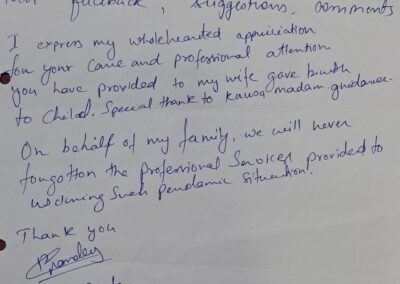 feedback, suggestions, comments
I express my wholehearted appriciation
for your care and professional attention
you have provided to my wife gave birth
to Child. Special thank to Kausa madam guidance.
On behalf of my family, we will never
forgotton the Professional Services provided to
us during such pendamic situation.
Thank you